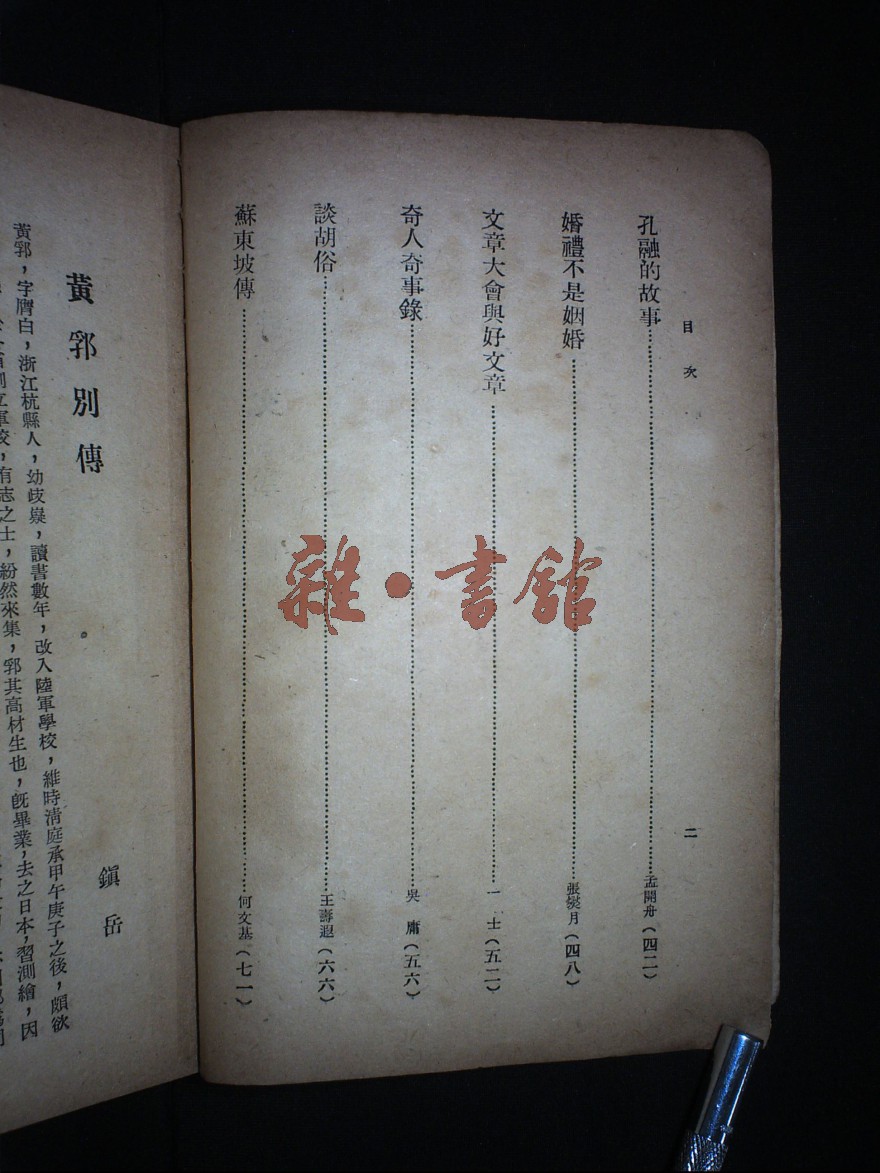 目次
二
孔融的故事……孟開舟(四二)
婚禮不是姻婚……張爕月(四八)
文章大會與好文章……一士(五二)
奇人奇事錄……吳庸(五六)
談胡俗……王壽遐(六六)
蘇東坡傳……何文基(七一)
雜·書館
黃郛別傳
鎭岳
黃郛，字膺白，浙江杭縣人，幼歧嶷，讀書數年，改入陸軍學校，維時淸庭承甲午庚子之後，頗欲
軍校，有志之士，紛然來集，郛其高材生也，旣畢業，去之日本，習測繪，因